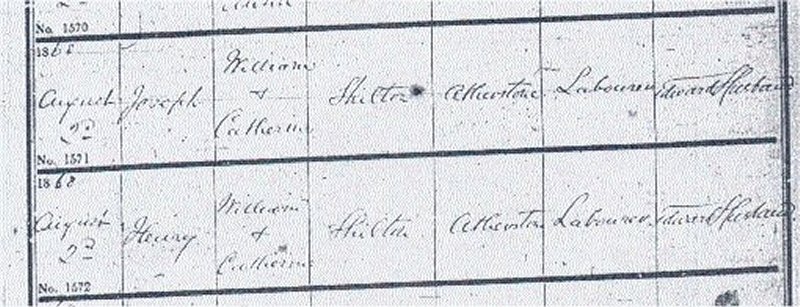 No. 1570
1868
August Joseph William & Catherine Shilton Atherstone Labourer Edward Husband
2d
No. 1571
1868
August Henry William & Catherine Shilton Atherstone Labourer Edward Husband
2d
No. 1572